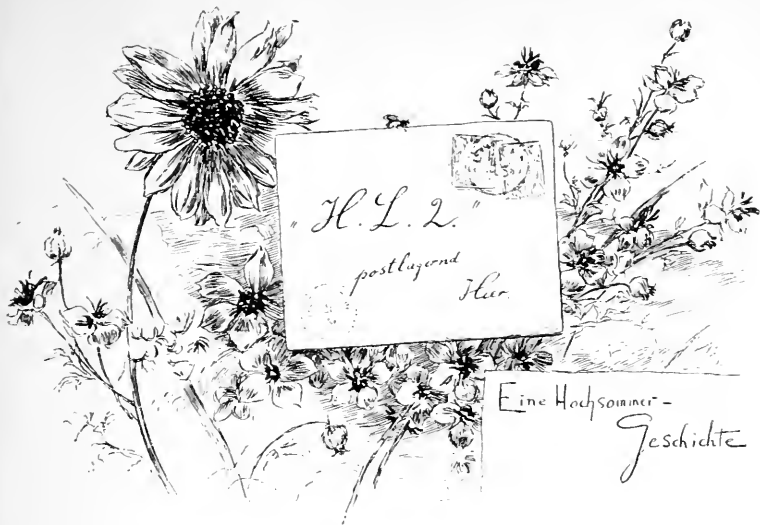 "H. L. 2."
postlagernd
Hier.
Eine Hochsommer-
Geschichte